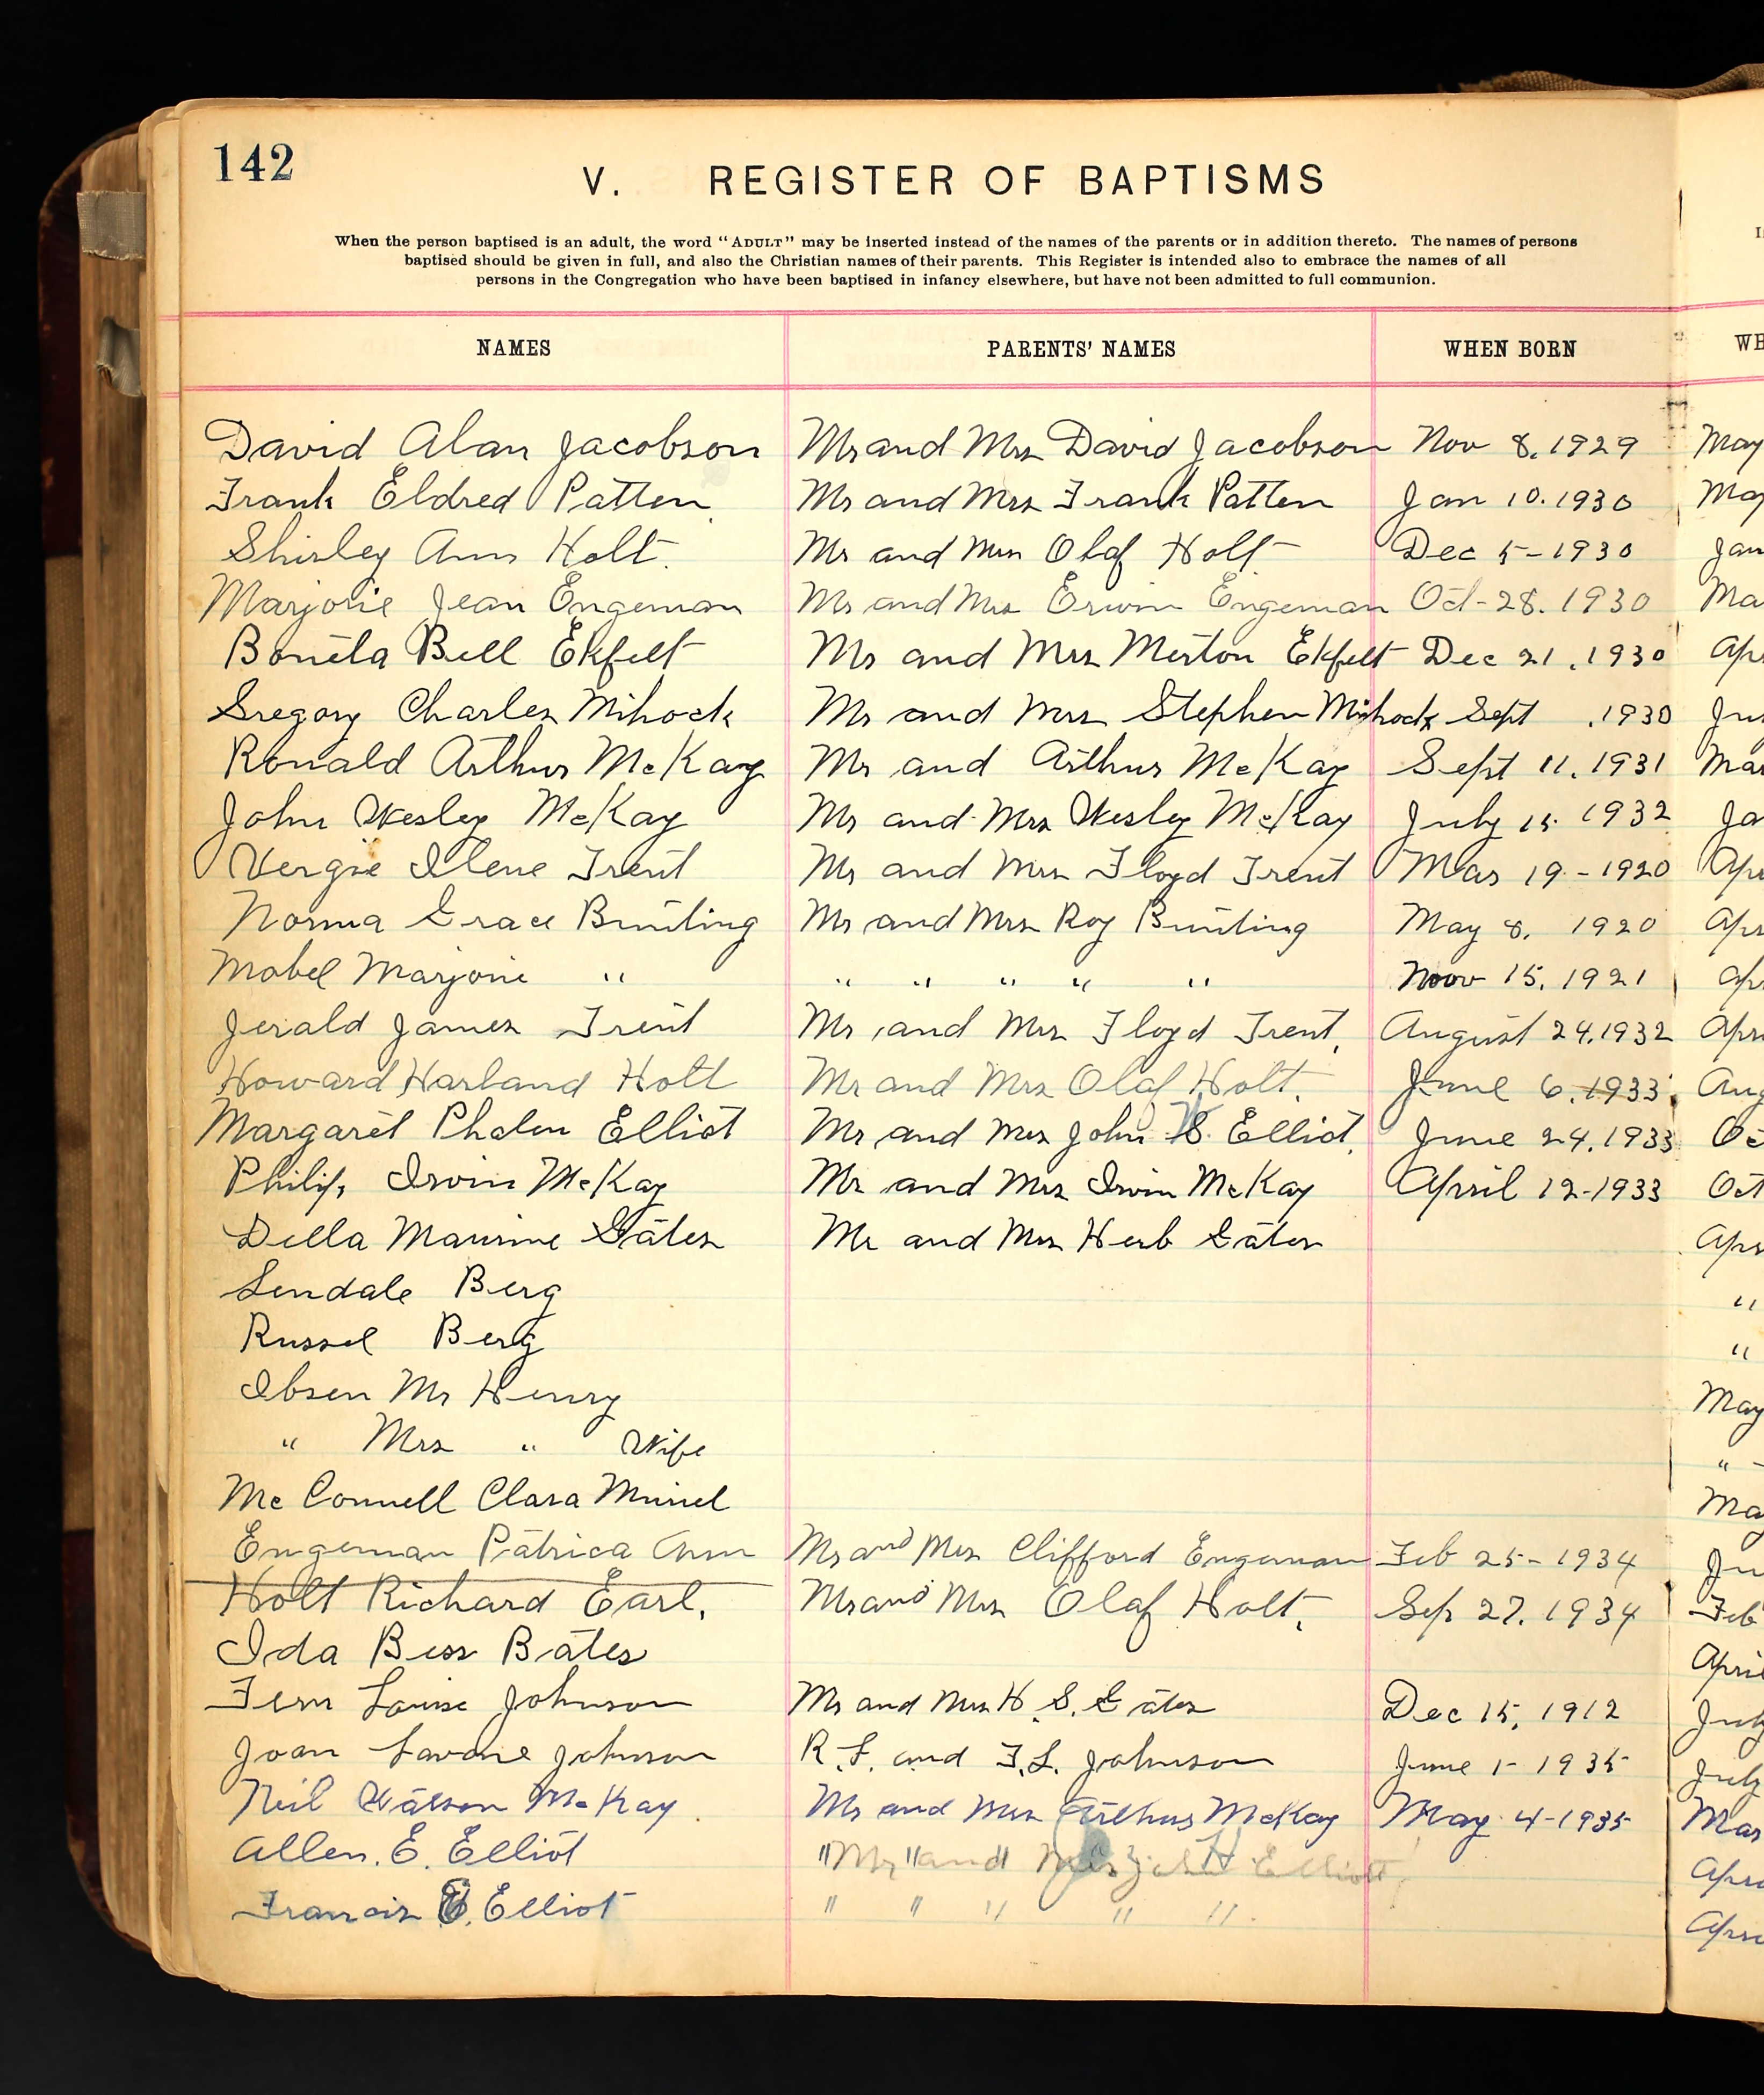 142
V. REGISTER OF BAPTISMS
When the person baptised is an adult, the word "ADULT" may be inserted instead of the names of the parents or in addition thereto. The names of persons
baptised should be given in full, and also the Christian names of their parents. This Register is intended also to embrace the names of all
persons in the Congregation who have been baptised in infancy elsewhere, but have not been admitted to full communion.
NAMES PARENTS' NAMES WHEN BORN WH
David Alan Jacobson Mr and Mrs David Jacobson Nov 8, 1929 May
Frank Eldred Patten Mr and Mrs Frank Patten Jan 10. 1930 May
Shirley Ann Holt. Mr and Mrs Olaf Holt Dec 5-1930 Jan
Marjorie Jean Engeman Mr and Mrs Erwin Engeman Oct-28. 1930 Ma
Boneta Bell Ekfelt Mr and Mrs Merton Ekfelt Dec 21, 1930 Apr
Gregory Charles Mihock Mr and Mrs Stephen Mihock Sept , 1930 Ju
Ronald Arthur McKay Mr and Arthur McKay Sept 11, 1931 Mar
John Wesley McKay Mr and Mrs Wesley McKay July 15 1932 Ja
Vergie Ilene Trent Mr and Mrs Floyd Trent Mar 19-1920 Apr
Norma Grace Bunting Mr and Mrs Roy Bunting May 8, 1920 Apr
Mabel Marjorie " " " " " " Nov 15, 1921 Ap
Jerald James Trent Mr and Mrs Floyd Trent, August 24, 1932 Apri
Howard Harland Holt Mr and Mrs Olaf Holt. June 6, 1933, Aug
Margaret Phalen Elliot Mr and Mrs John Elliot, June 24, 1933 Oc
Philip Irvin McKay Mr and Mrs Irvin McKay April 12-1933 Oct
Della Maurine Gates Mr and Mrs Herb Gates Apr
Lendale Berg "
Russel Berg "
Ibsen Mr Henry May
" Mrs " Wife " -
McConnell Clara Muriel Ma
Engeman Patrica Ann Mr and Mrs Clifford Engeman Feb 25-1934 Ju
Holt Richard Earl. Mr and Mrs Olaf Holt, Sep 27. 1934 Feb
Ida Bess Bates April
Fern Louise Johnson Mr and Mrs H. S. Gates Dec 15, 1912 July
Joan Lavone Johnson R. L. and F. L. Johnson June 1-1935 July
Neil Watson McKay. Mr and Mrs Arthur McKay May 4-1935 Mar
Allen. E. Elliot " Mr " and " Mrs John H Elliott Apri
Francis E. Elliot " " " " ". Apri